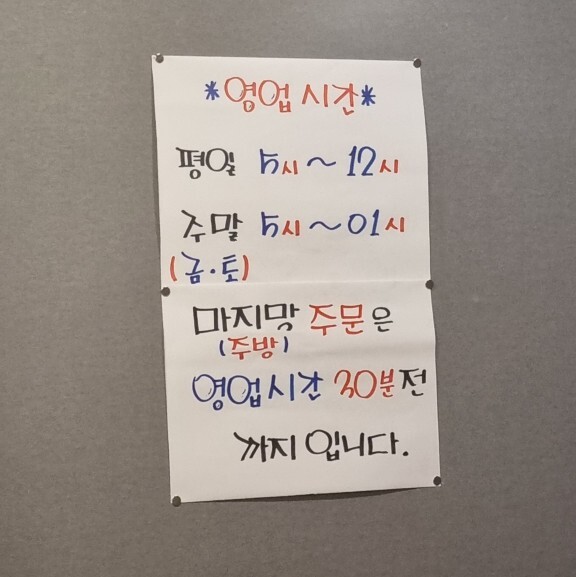 *영업 시간*
평일 5시~12시
주말 5시~01시
(금·토)
마지망 주문은
(주방)
영업시간 30분전
까지 입니다.